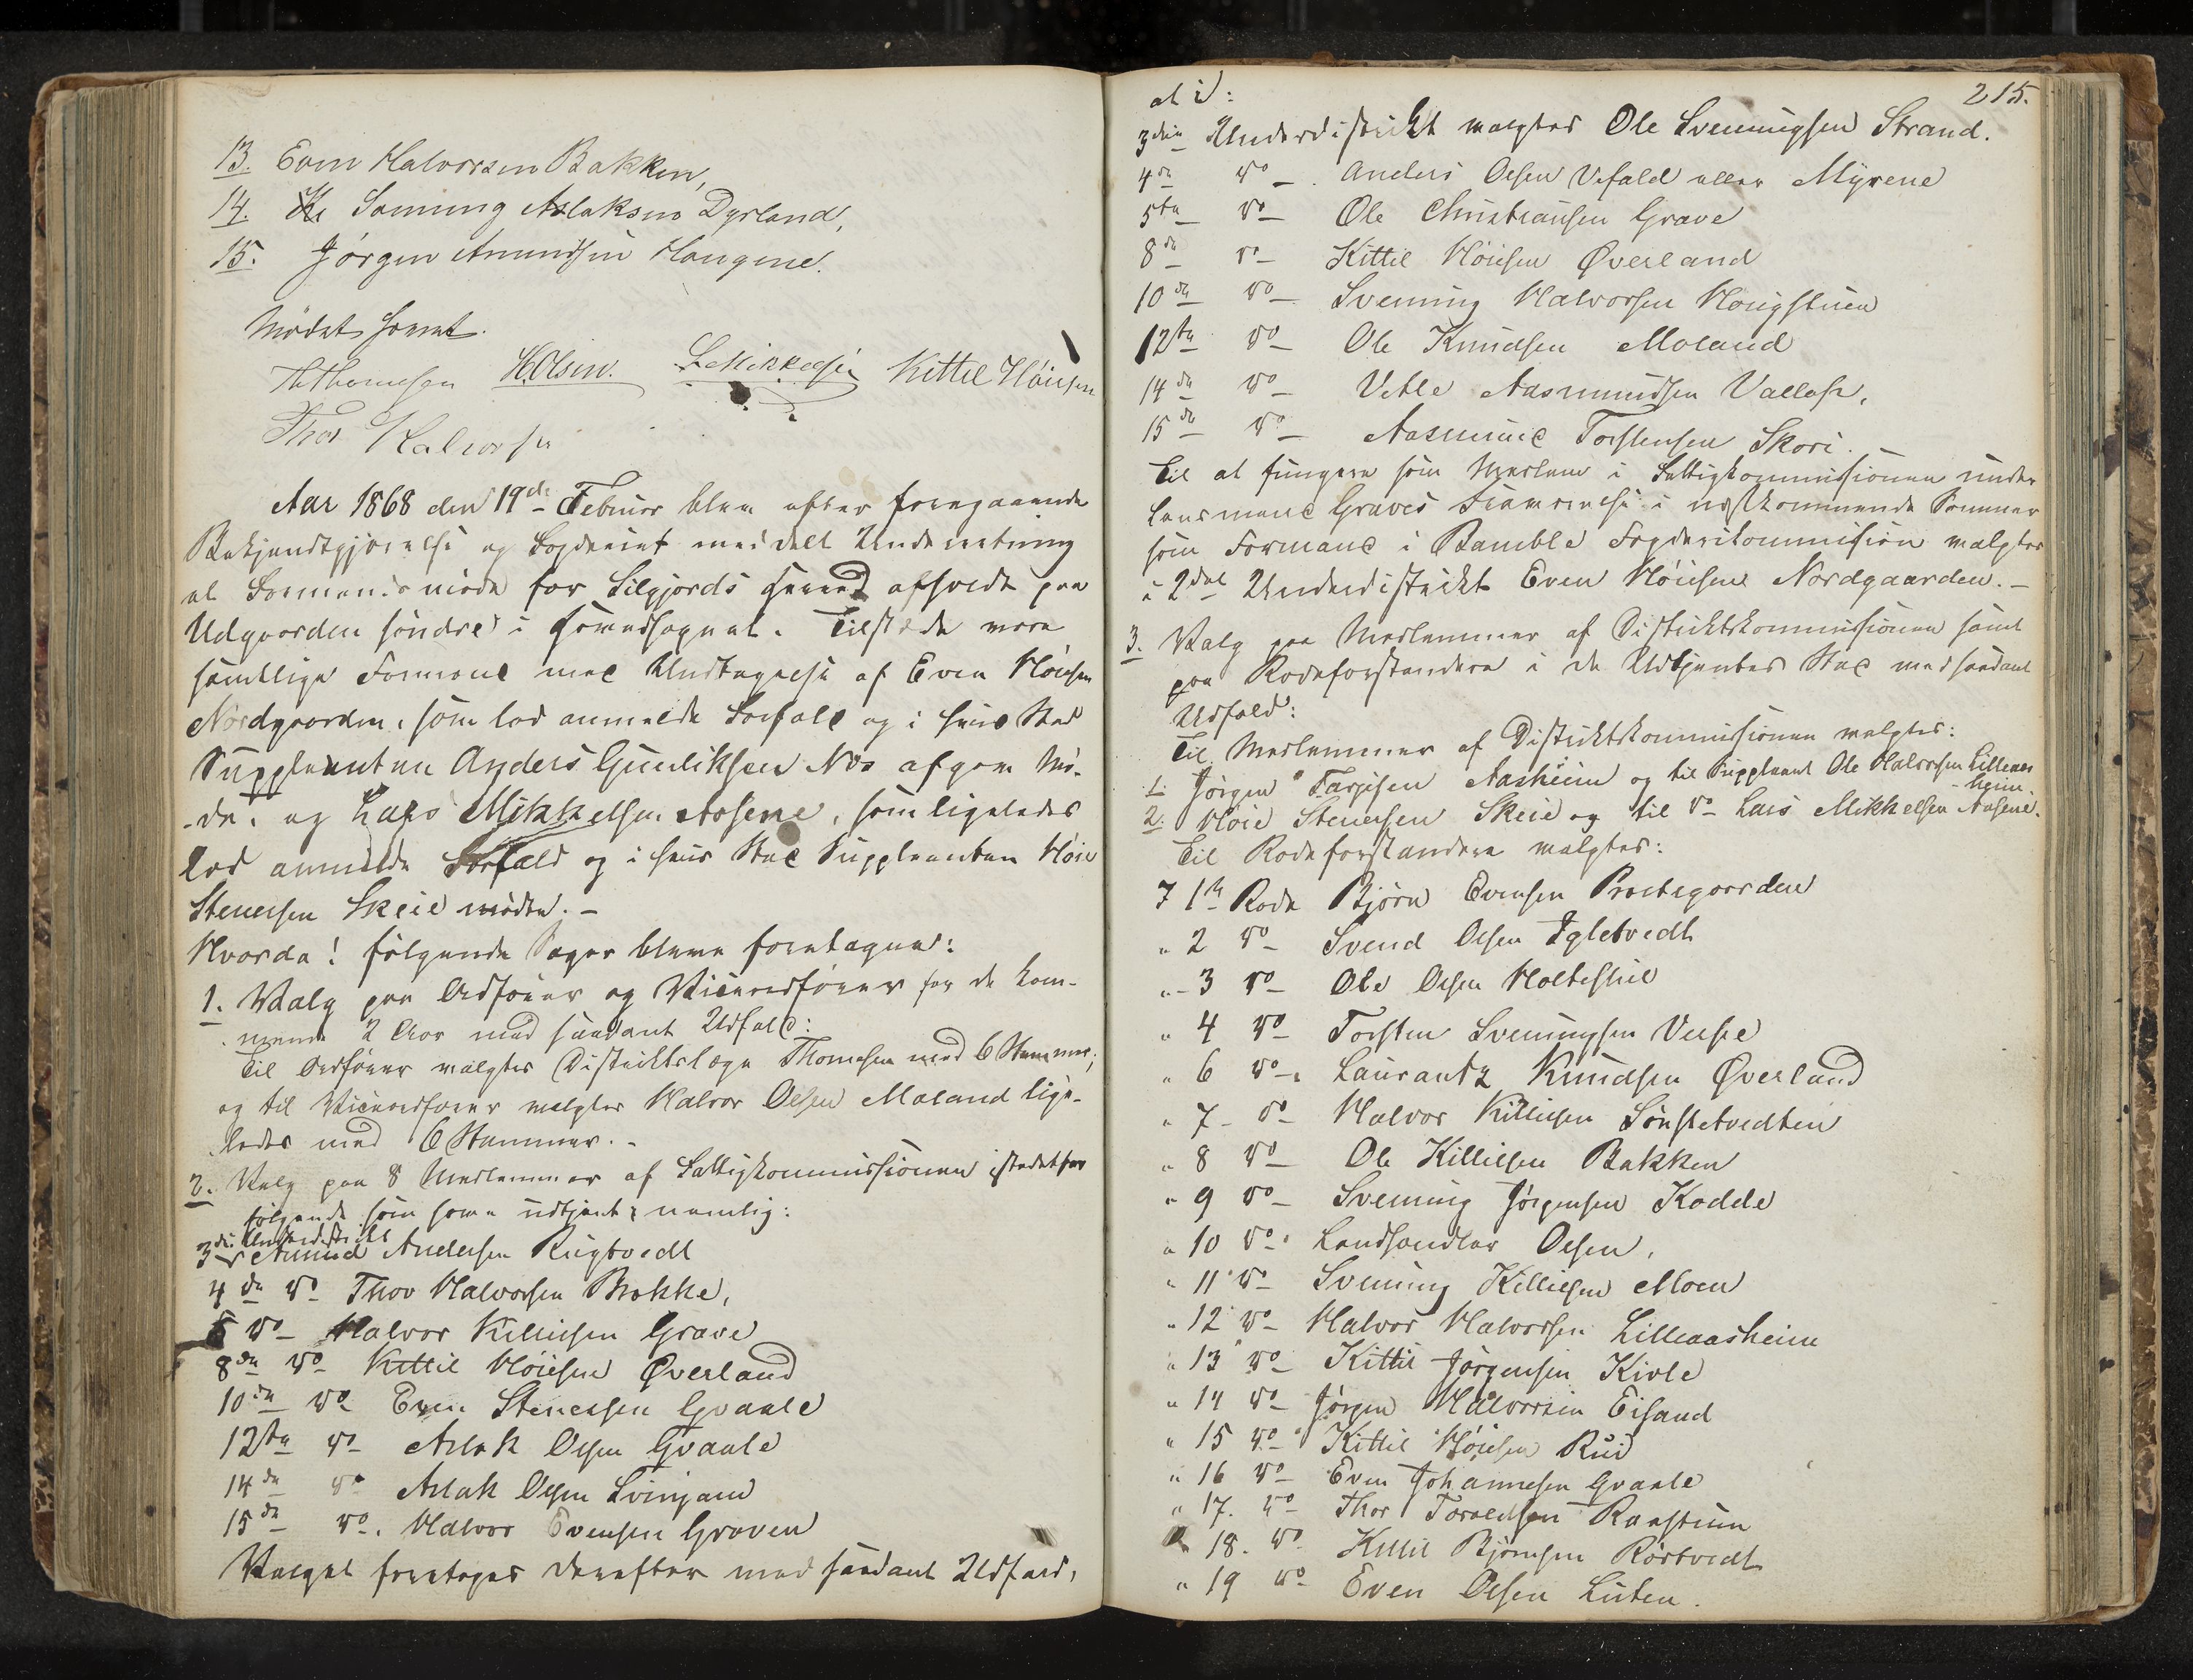 13. Even Halvorsen Bakken,
14. Sveinung Aslaksen Dyrland,
15. Jörgen Amundsen Haugene.
Mödet hævet.
Th Thomesen H. Olsen. L Mikkelsen Kittel Höiesen
Thor Halvorsen
Aar 1868 den 19de Februar blev efter foregaaende
Bekjendtgjörelse og Bogderiet meddelt Underretning
et Formandsmöde for Silgjords Herred afholdt paa
Udgaarden söndre i Hovedsognet. Tilstede vare
samtlige Formænd med Undtagelse af Even Höiesen
Nordgaarden, som lod anmelde Forfald og i hvis Sted
Suppleanten Anders Gunleiksen Næs afgav Mö-
de, og Lars Mikkelsen Aasene, som ligeledes
lod anmelde Forfald og i hvis Sted Suppleanten Höie
Stenersen Skeie mödte. –
Hvorda! fölgende Sager bleve foretagne:
1. Valg paa Ordförer og Viceordförer for de kom-
mende 2 Aar med saadant Udfald:
Til Ordförer valgtes Distriktslæge Thomesen med 6 Stemmer,
og til Viceordförer valgtes Halvor Olsen Moland lige-
ledes med 6 Stemmer. –
2. Valg paa 8 Medlemmer af Fattigkommissionen istedetfor
fölgende som have udtjent, nemlig:
3die Underdistrikt
Amund Andersen Rugtvedt
4de do Thov Halvorsen Brokke,
5 do Halvor Kittilsen Grave
8de do Kittil Höiesen Øverland
10de do Even Stenersen Gvaale
12te do Aslak Olsen Gvaale
14de do Aslak Olsen Svinjam
15de do. Halvor Evensen Graven
Valget foretoges derefter med saadant Udfald,
215.
at i:
3die Underdistrikt valgtes Ole Sveinungsen Strand.
4de do – Anders Olsen Vefald eller Myrene
5te do – Ole Christiansen Grave
8de do – Kittil Höiesen Øverland
10de do – Sveinung Halvorsen Haugstuen
12te do – Ole Knudsen Moland
14de do – Vetle Aasmundsen Valle,
15de do – Aasmund Torstensen Skori.
Til at fungere som Medlem i Fattigkommissionen under
Lensmand Graves Fraværelse i næstkommende Sommer
som Formand i Bamble Fogderikommission valgtes
i 2det Underdistrikt Even Höiesen Nordgaarden. –
3. Valg paa Medlemmer af Distriktskommissionen samt
paa Rodeforstandere i de Udtjentes Sted med saadant
Udfald:
Til Medlemmer af Distriktskommissionen valgtes:
1. Jörgen Tarjesen Aasheim og til Suppleant Ole Halvorsen Lilleaas-
heim.
2. Höie Stenersen Skeie og til do – Lars Mikkelsen Aasene.
Til Rodeforstandere valgtes:
I 1te Rode Björn Evensen Prestegaarden
" 2 do – Svend Olsen Igletvedt
" 3 do – Ole Olsen Holtestul
" 4 do Torsten Sveinungsen Versto
" 6 do – Laurantz Knudsen Øverland
" 7 – do – Halvor Kittilsen Sönstetvedten
" 8 do – Ole Kittilsen Bakken
" 9 do – Sveinung Jörgensen Kodde
" 10 do – Landhandler Olsen,
" 11 do – Sveinung Kittilsen Moen
" 12 do – Halvor Halvorsen Lilleaasheim
" 13 do – Kittil Jörgensen Kivle
" 14 do – Jörgen Halvorsen Eisand
" 15 do – Kittil Höiesen Rui
" 16 do – Even Johannesen Gvaale
" 17. do – Thor Toraldsen Raastuen
" 18. do – Kittil Björnsen Rörtvedt
" 19 do – Even Olsen Luten.